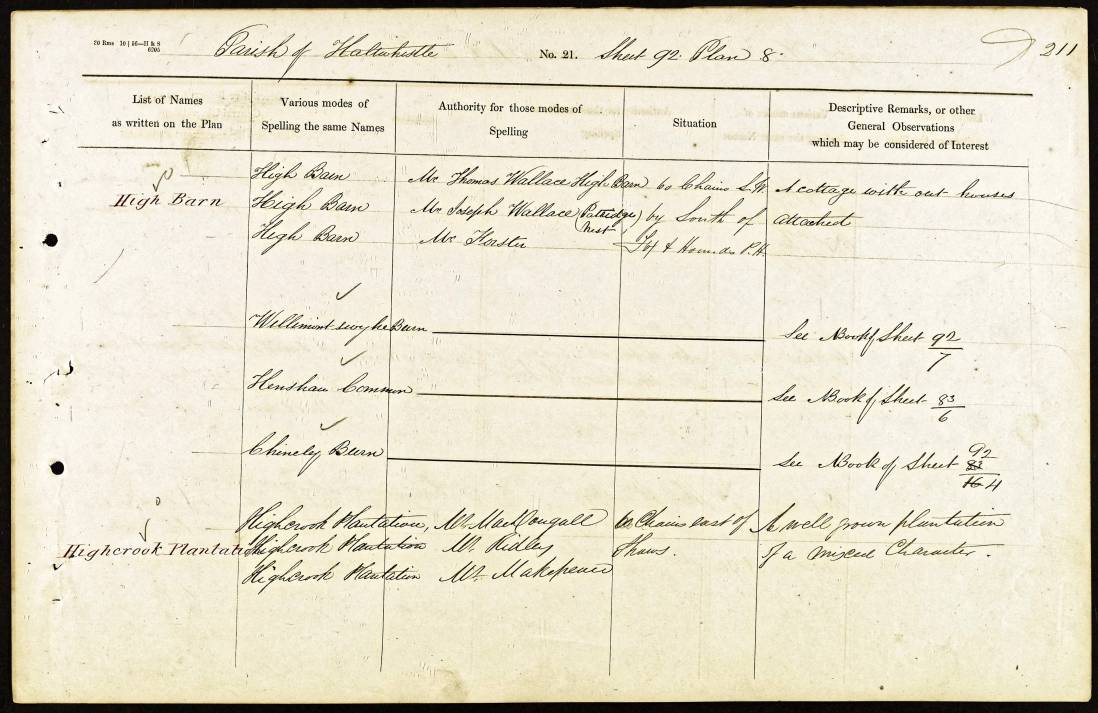 20 Rms 10 | 56—H & S
6205
Parish of Haltwhistle No. 21. Sheet 92. Plan 8. 211
List of Names
as written on the Plan
Various modes of
Spelling the same Names
Authority for those modes of
Spelling
Situation
Descriptive Remarks, or other
General Observations
which may be considered of Interest
High Barn
High Barn
High Barn
High Barn
Mr. Thomas Wallace High Barn
Mr. Joseph Wallace (Patridge Nest)
Mr. Forster
60 Chains S.W.
by South of
Fox & Hounds P.H.
A cottage with out houses
attached
Burn
See N Book of Sheet 92/7
Henshaw Common
See N Book of Sheet 83/6
Chinely Burn
See N Book of Sheet 92/4
Highcrook Plantation
Highcrook Plantation,
Highcrook Plantation
Highcrook Plantation
Mr. MacDougall
Mr. Ridley
Mr. Makepeace
60 Chains east of
Shaws.
A well grown plantation
of a mixed Character.